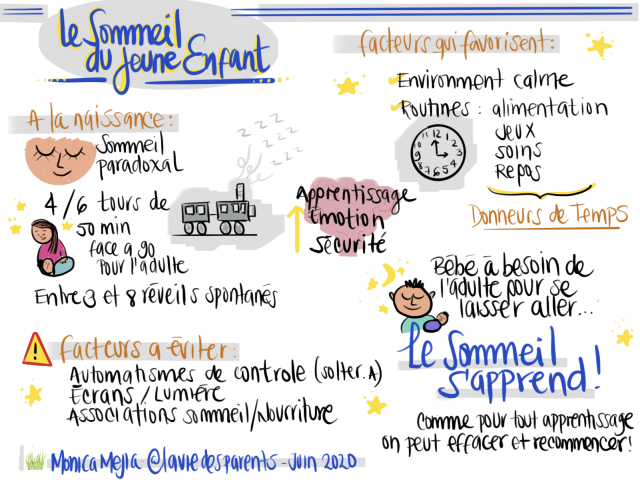 Le Sommeil
du Jeune Enfant
A la naissance :
Sommeil
paradoxal
4/6 tours de
50 min
face a 90
pour l'adulte
Entre 3 et 8 réveils spontanés
z z z
z z z
z z z
Apprentissage
Émotion
Sécurité
Facteurs qui favorisent :
Environment calme
Routines : alimentation
jeux
soins
Repos
12 1 2 3 4 5 6 7 8 9 10 11
Donneurs de Temps
Bébé a besoin de
l'adulte pour se
laisser aller...
Le Sommeil
s'apprend !
Comme pour tout apprentissage
on peut effacer et recommencer !
Facteurs a éviter :
Automatismes de controle (solter.A)
Écrans / Lumière
Associations sommeil/Nourriture
Monica Mejia @laviedesparents - Juin 2020